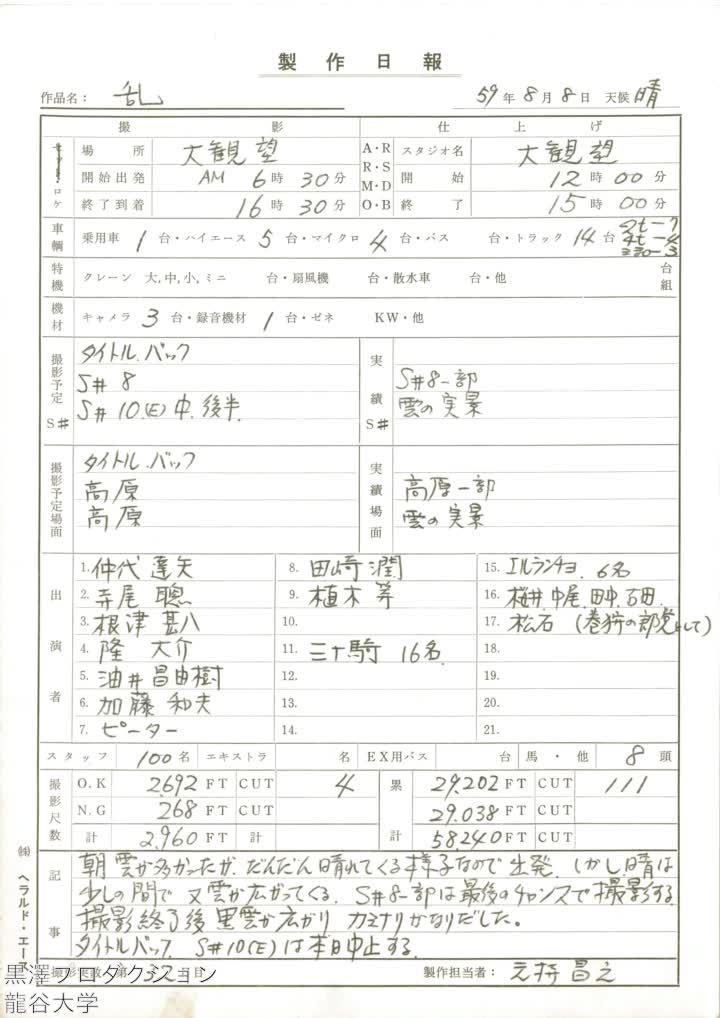 製作日報
作品名： 乱 59年 8月 8日 天候 晴
撮影 仕上げ
セット・ロケ 場所 大観望 A・R R・S M・D O・B スタジオ名 大観望
開始出発 AM 6時 30分 開始 12時 00分
終了到着 16時 30分 終了 15時 00分
車輌 乗用車 1 台・ハイエース 5 台・マイクロ 4 台・バス 台・トラック 14 台 2t-7 4t-4
特機 クレーン 大,中,小,ミニ 台・扇風機 台・散水車 台・他 台組
機材 キャメラ 3 台・録音機材 1 台・ゼネ KW・他
撮影予定 S# タイトルバック 実績 S#
S# 8 S#8一部
S# 10.(E) 中.後半. 雲の実景
撮影予定場面 タイトル.バック 実績場面
高原 高原一部
高原 雲の実景
出演者
1. 仲代 達矢 8. 田崎 潤 15. エルランチョ 6名
2. 寺尾 聰 9. 植木 等 16. 桜井.中尾.田中.百田.
3. 根津 甚八 10. 17. 松石 (巻狩の郎党として)
4. 隆 大介 11. 三十騎 16名 18.
5. 油井 昌由樹 12. 19.
6. 加藤 和夫 13. 20.
7. ピーター 14. 21.
スタッフ 100名 エキストラ 名 EX用バス 台 馬・他 8 頭
撮影尺数 O.K 2692 FT CUT 4 累計 29.202 FT CUT 111
N.G 268 FT CUT 29.038 FT CUT
計 2,960 FT 計 58240 FT CUT
記事 朝 雲が多かったが、だんだん晴れてくる様子なので出発. しかし.晴は
少しの間で 又 雲が広がってくる. S#8一部は最後のチャンスで撮影する.
撮影終了後 黒雲が広がり カミナリがなりだした。
タイトルバック. S#10(E)は本日中止する.
撮影実数 第 32 日目 製作担当者： 元持 昌之
㈱ ヘラルド・エース
黒澤プロダクション
龍谷大学